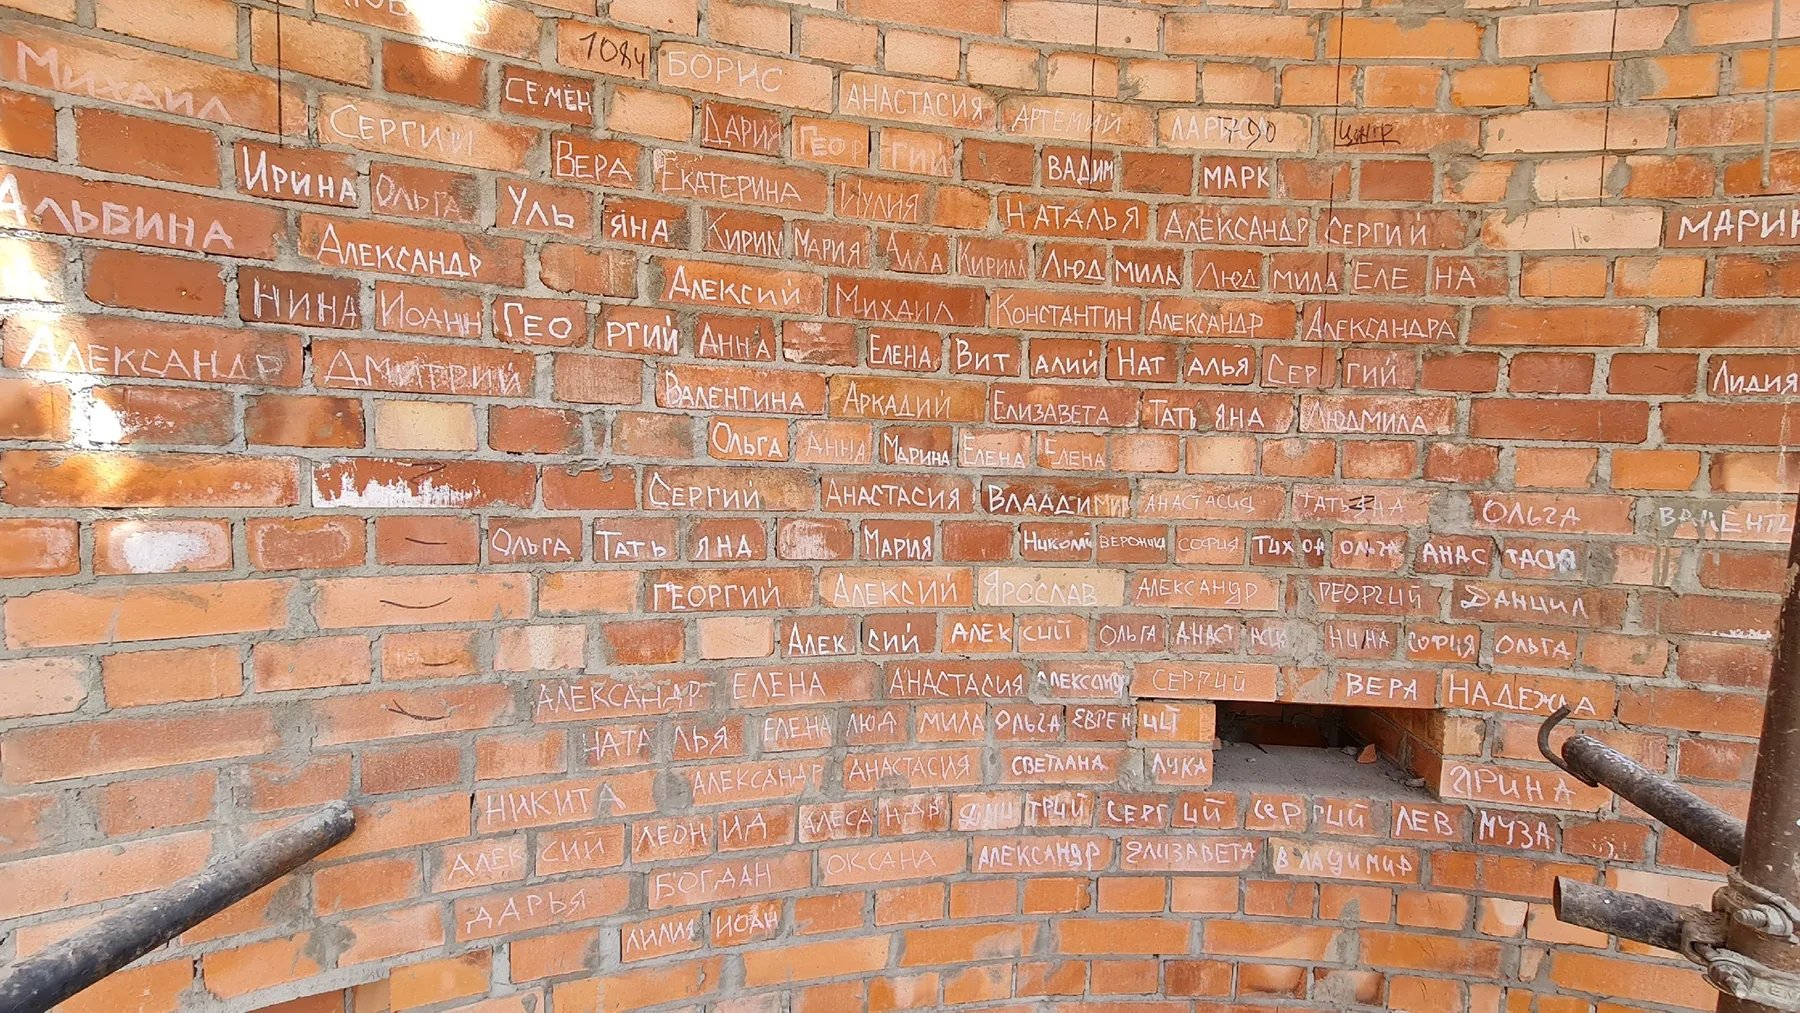 1084 БОРИС
МИХАИЛ СЕМЁН АНАСТАСИЯ АРТЕМИЙ
СЕРГИЙ ДАРИЯ ГЕОРГИЙ ВАДИМ МАРК
ИРИНА ОЛЬГА ВЕРА ЕКАТЕРИНА ИУЛИЯ НАТАЛЬЯ АЛЕКСАНДР СЕРГИЙ МАРИН
АЛЬБИНА УЛЬ ЯНА КИРИЛЛ МАРИЯ АЛЛА КИРИЛЛ ЛЮД МИЛА ЛЮД МИЛА ЕЛЕ НА
АЛЕКСАНДР АЛЕКСИЙ МИХАИЛ КОНСТАНТИН АЛЕКСАНДР АЛЕКСАНДРА
НИНА ИОАНН ГЕО РГИЙ АННА ЕЛЕНА ВИТ АЛИЙ НАТ АЛЬЯ СЕР ГИЙ ЛИДИЯ
АЛЕКСАНДР ДМИТРИЙ ВАЛЕНТИНА АРКАДИЙ ЕЛИЗАВЕТА ТАТЬЯНА ЛЮДМИЛА
ОЛЬГА АННА МАРИНА ЕЛЕНА ЕЛЕНА
СЕРГИЙ АНАСТАСИЯ ВЛААДИМИР АНАСТАСИЯ ТАТЬЯНА ОЛЬГА
ОЛЬГА ТАТЬ ЯНА МАРИЯ ВЕРОНИКА СОФИЯ ТИХ ОН ОЛЬГА АНАС ТАСИЯ
ГЕОРГИЙ АЛЕКСИЙ ЯРОСЛАВ АЛЕКСАНДР ГЕОРГИЙ ДАНИИЛ
АЛЕК СИЙ АЛЕК СИЙ ОЛЬГА АНАСТ АСИЯ НИНА СОФИЯ ОЛЬГА
АЛЕКСАНДР ЕЛЕНА АНАСТАСИЯ АЛЕКСАНДР СЕРГИЙ ВЕРА НАДЕЖДА
НАТА ЛЬЯ ЕЛЕНА ЛЮД МИЛА ОЛЬГА ЕВГЕН ИЙ
АЛЕКСАНДР АНАСТАСИЯ СВЕТЛАНА ЛУКА ИРИНА
НИКИТА ЛЕОН ИД АЛЕСА НДЫ ДМИ ТРИЙ СЕРГ ИЙ СЕР ГИЙ ЛЕВ МУЗА
АЛЕК СИЙ БОГДАН ОКСАНА АЛЕКСАНДР ЕЛИЗАВЕТА ВЛАДИМИР
ДАРЬЯ ЛИЛИЯ ИОАН